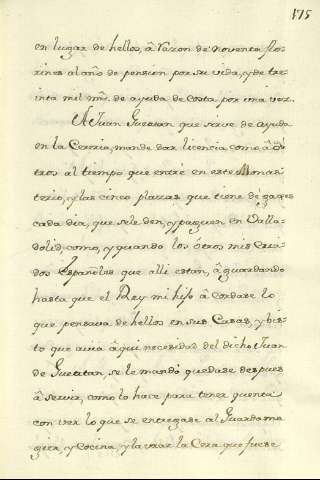 175
en lugar de hellos, â razon de noventa flo-
rines al año de pension por su vida, y de tre-
inta mil mrs. de ayuda de costa por una vez.
A Juan Guetan que sirve de ayuda
en la Cereria, mande dar licencia como â ôs
tros al tiempo que entrè en este Monas
terio, y las cinco plazas que tiene de gages
cada dia, que se le den, y paguen en Valla-
dolid, como, y quando los otros mis Cria-
dos Españoles que alli estan, â guardando
hasta que el Rey mi hijo â cordase lo
que pensava de hellos en sus Casas, y bis-
to que avia âqui necesidad del dicho Juan
de Guetan, se le mandó quedase despues
â servir, como lo hace para tener quenta
con ver lo que se entregase al Guardama
gier, y Cocina, y labrar la Cera que fuese